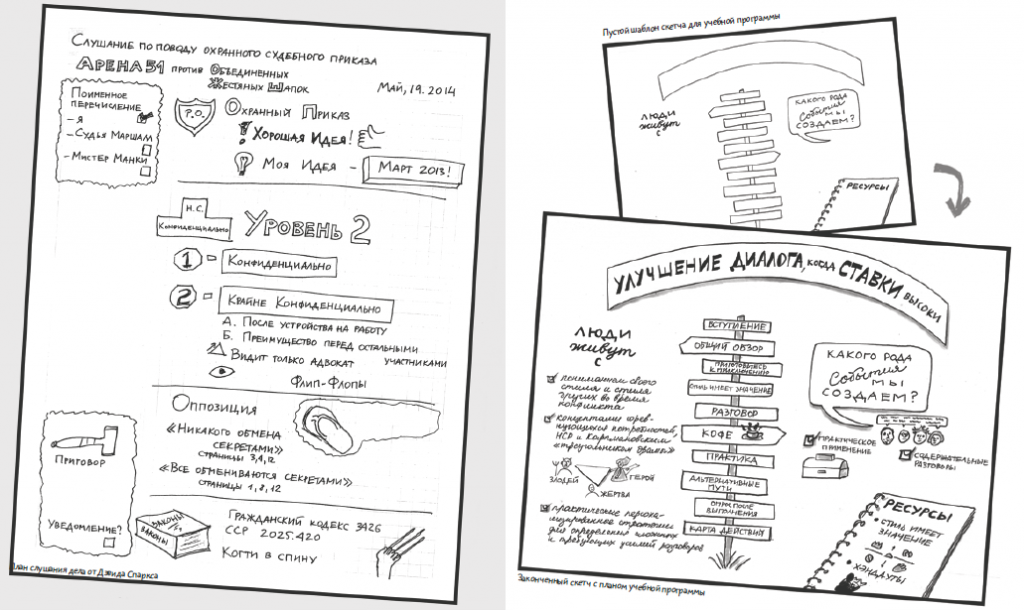 Слушание по поводу охранного судебного приказа
Арена 51 против Объединенных
Жестяных Шапок
Май, 19. 2014
Поименное
перечисление
- Я
- Судья Маршам
- Мистер Манки
P.O.
Охранный Приказ
! Хорошая Идея!
Моя Идея - Март 2013!
Н.С.
Конфиденциально
Уровень 2
1 - Конфиденциально
2 - Крайне Конфиденциально
А. После устройства на работу
Б. Преимущество перед остальными
участниками
Видит только адвокат
Флип-Флопы
Оппозиция
«Никакого обмена
секретами»
страницы 3,4,12
«Все обмениваются секретами»
страницы 1, 8, 12
Приговор
Уведомление?
Законы
Законы
Гражданский кодекс 3426
ССР 2025.420
Когти в спину
План слушания дела от Дэвида Спаркса
Пустой шаблон скетча для учебной программы
Люди
живут
с
Какого рода
События
мы
создаем?
Ресурсы
Улучшение диалога, когда ставки высоки
Люди
живут
с
пониманием своего
стиля и стиля
других во время
конфликта
концепциями
потребностей,
НСР и Карпмановским
Злодей
Герой
Жертва
практические
стратегии
для определения
и требующих усилий разговоров
Вступление
Общий обзор
Приготовьтесь
к приключению
Стиль имеет значение
Разговор
Кофе
Практика
Альтернативные
пути
Опрос после
выполнения
Карта действий
Какого рода
События
мы
создаем?
Практическое
применение
Содержательные
разговоры
Ресурсы
• Стиль имеет
значение
• Хэндауты
Законченный скетч с планом учебной программы